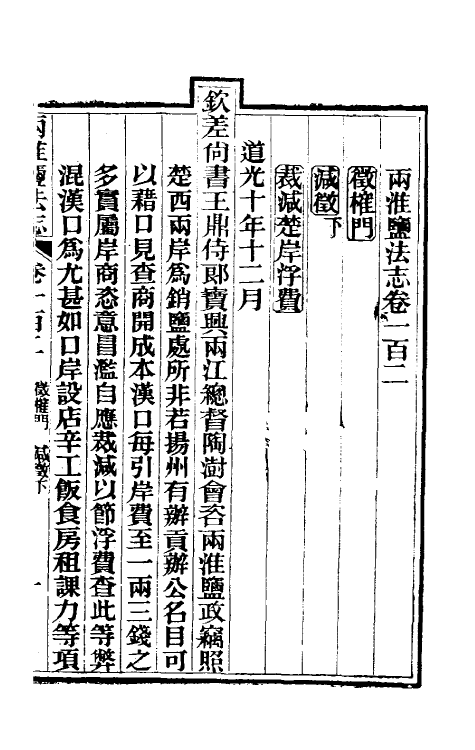 兩淮鹽法志卷一百二
徵榷門
減徵下
裁減楚岸浮費
道光十年十二月
欽差尙書王鼎侍郎寶興兩江總督陶澍會咨兩淮鹽政竊照
楚西兩岸爲銷鹽處所非若揚州有辦貢辦公名目可
以藉口見查商開成本漢口每引岸費至一兩三錢之
多實屬岸商恣意冒濫自應裁減以節浮費查此等弊
混漢口爲尤甚如口岸設店辛工飯食房租課力等項
兩淮鹽法志 卷一百二 徵榷門 減徵下 一